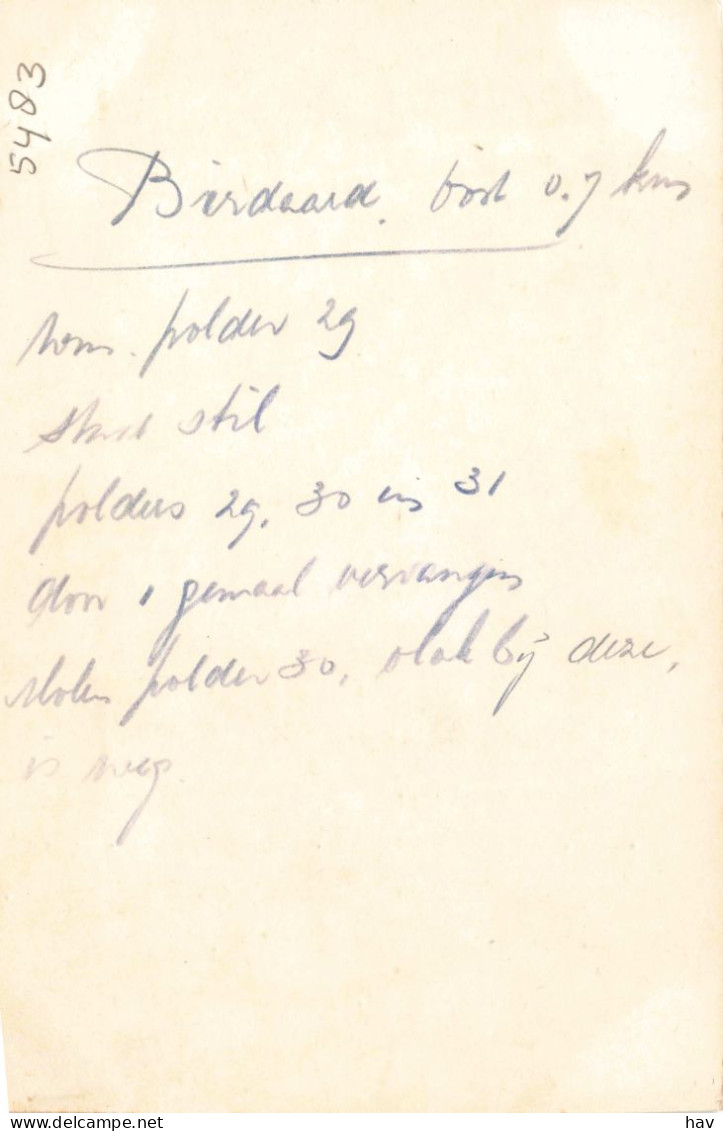 5483
Birdaard. Oost 0.7 km
polder 29
staat stil
polders 29, 30 en 31
door 1 gemaal vervangen
Molen polder 30, vlak bij deze,
is weg.
hav